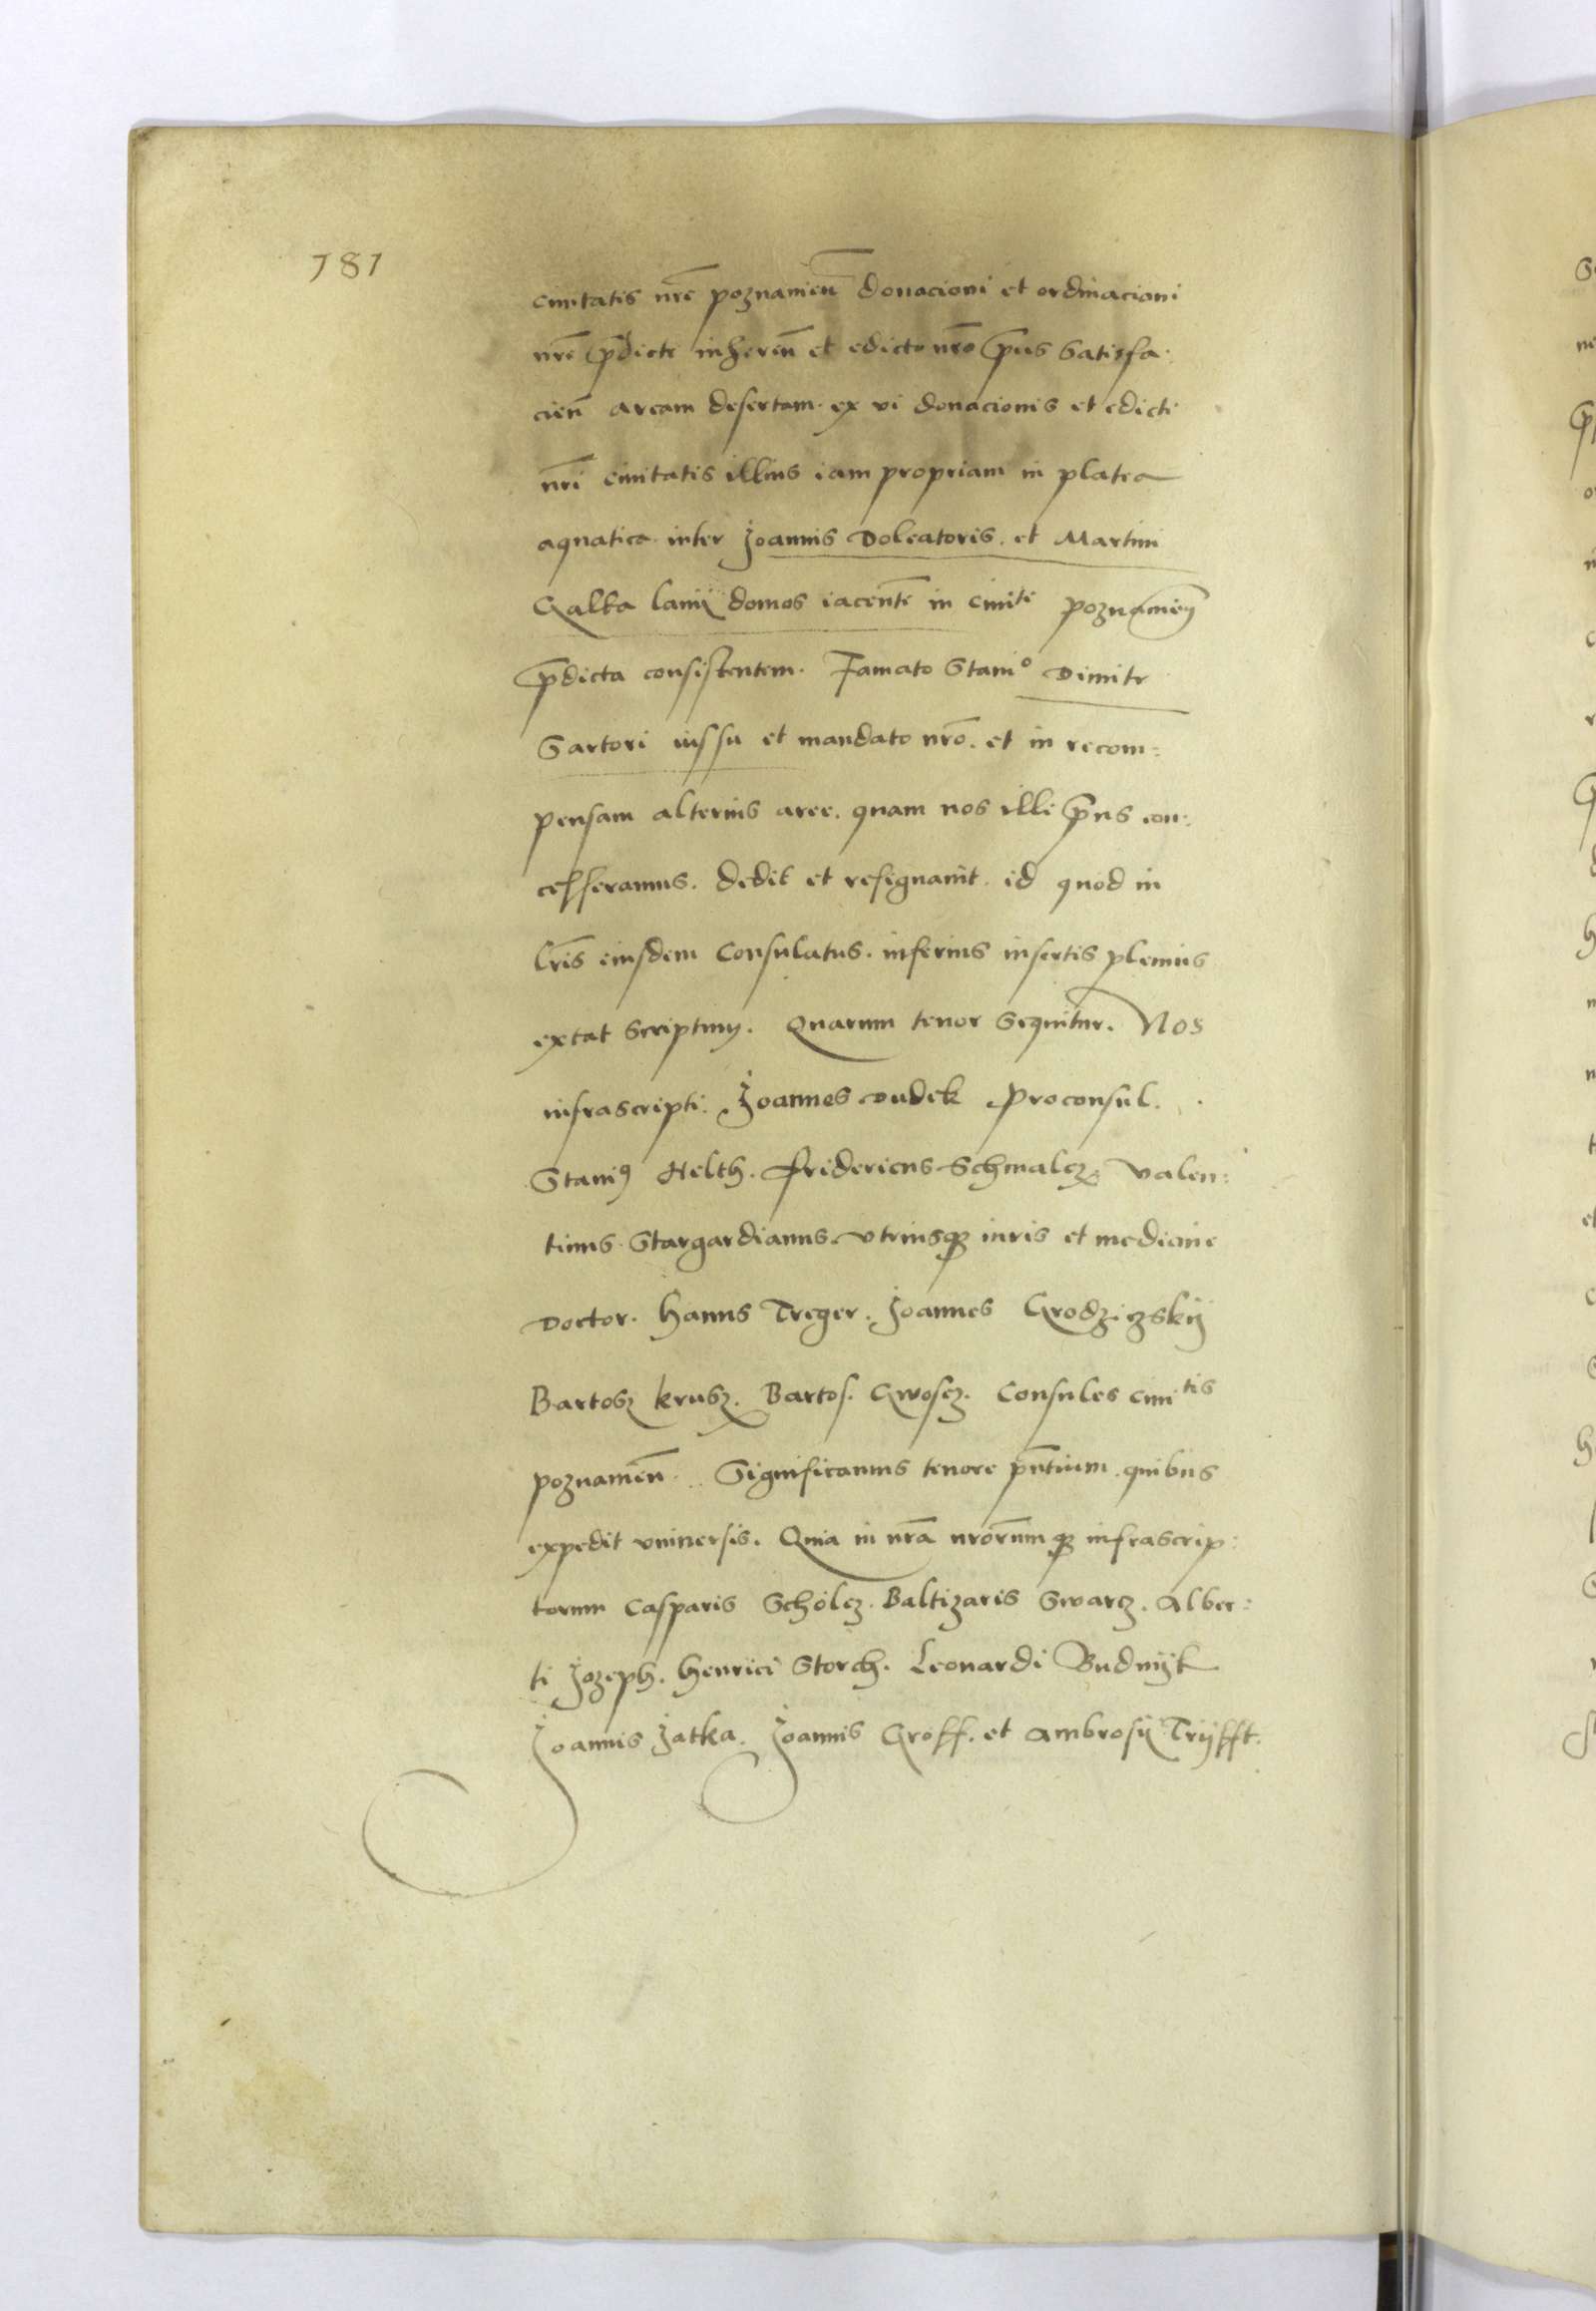 781
civitatis nrē poznanień donacioni et ordinacioni
nrē p̄dicte inhereń et edicto nrō p̄ns Satisfa:
cień aream desertam. ex vi donacionis et edicti
nrī civitatis illius iam propriam in platea
aquatica. inter Joannis Doleatoris. et Martini
Galka lanij domos iacentē in civite poznanień
p̄dicta consistentem. Famato Stanio Dimitr
Sartori iussu et mandato nrō. et in recom:
pensam alterius aree. quam nos illi p̄ns con:
cesseramus. dedit et resignavit. id quod in
lrīs eiusdem Consulatus. inferius insertis plenius
extat Scriptum. Quarum tenor Sequitur. Nos
infrascripti. Joannes Dudek proconsul.
Stanis Helth. Fridericus Schmalcz. Valen:
tinus Stargardianus. utriusq iuris et medicine
Doctor. Hanns Treger. Joannes Grodziczskij
Bartosz krusz. Bartos. Gwoscz. Consules civitis
poznanień. Significamus tenore pn̄tium. quibus
expedit vniversis. Quia in nrā nrōrumq infrascrip:
torum Casparis Scholcz. Baltizaris Swarcz. Alber:
ti Jozeph. Henrici Storch. Leonardi Budnijk
Joannis Jatka. Joannis Groff. et Ambrosij Trijfft.